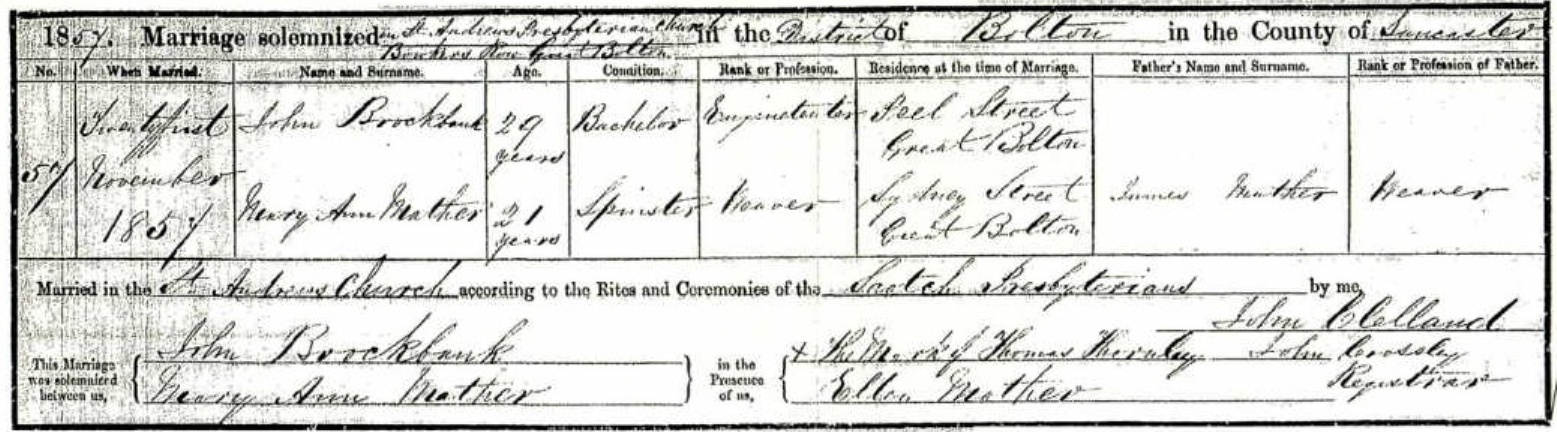 1857. Marriage solemnized in St. Andrews Presbyterian Church in the District of Bolton in the County of Lancaster
Bowkers Row Great Bolton
No. When Married. Name and Surname. Age. Condition. Rank or Profession. Residence at the time of Marriage. Father's Name and Surname. Rank or Profession of Father.
57 Twenty first November 1857
John Brockbank 29 years Bachelor Enginetenter Peel Street Great Bolton
Mary Ann Mather 21 years Spinster Weaver Sydney Street Great Bolton James Mather Weaver
Married in the St. Andrews Church according to the Rites and Ceremonies of the Scotch Presbyterians by me,
John Clelland
This Marriage was solemnized between us,
John Brockbank
Mary Ann Mather
in the Presence of us,
+ The Mark of Thomas Thornley
Ellen Mather
John Crossley
Registrar